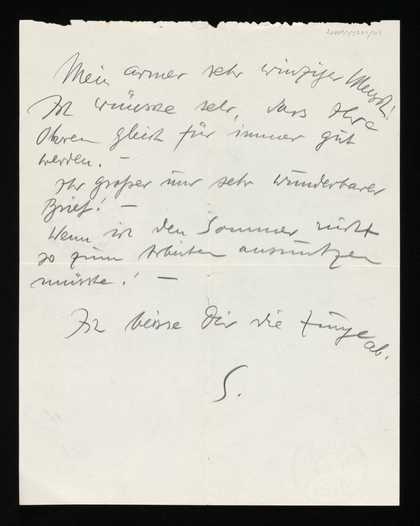 Mein armer sehr winziger Mensch!
Ich wünsche sehr, dass Ihre
Ohren gleich für immer gut
werden. –
Ihr großer und sehr wunderbarer
Brief! –
Wenn ich den Sommer nicht
so zum Arbeiten ausnützen
müsste! –
Ich beisse Dir die Zunge
ab.
S.